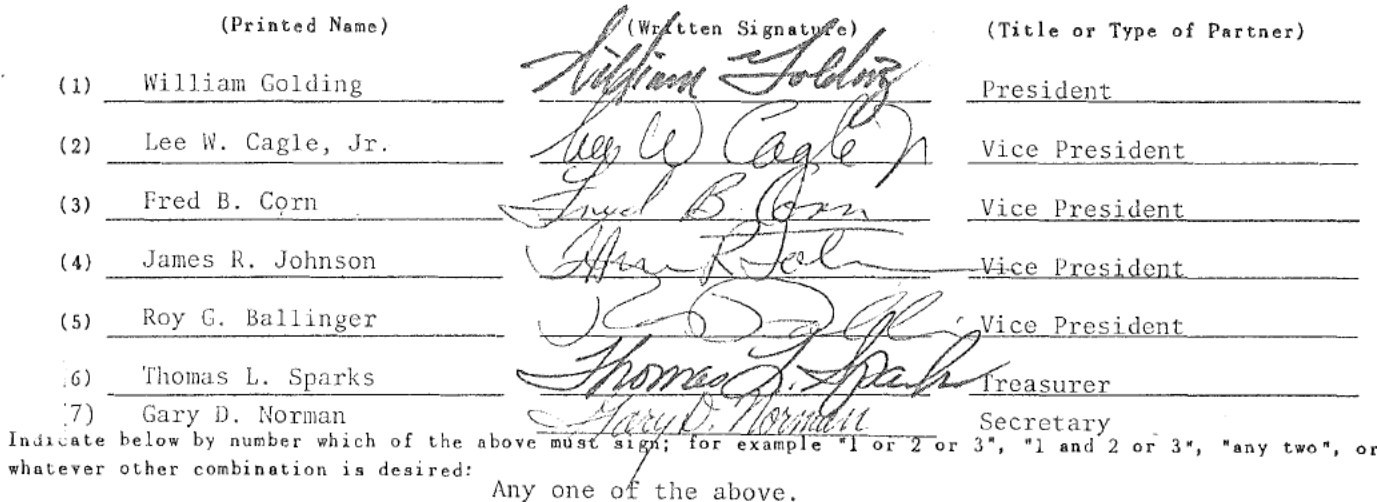 (Printed Name) (Written Signature) (Title or Type of Partner)
(1) William Golding William Golding President
(2) Lee W. Cagle, Jr. Lee W Cagle Jr Vice President
(3) Fred B. Corn Fred B. Corn Vice President
(4) James R. Johnson Vice President
(5) Roy G. Ballinger Vice President
6) Thomas L. Sparks Thomas L. Sparks Treasurer
7) Gary D. Norman Gary D. Norman Secretary
Indicate below by number which of the above must sign; for example "1 or 2 or 3", "1 and 2 or 3", "any two", or
whatever other combination is desired:
Any one of the above.